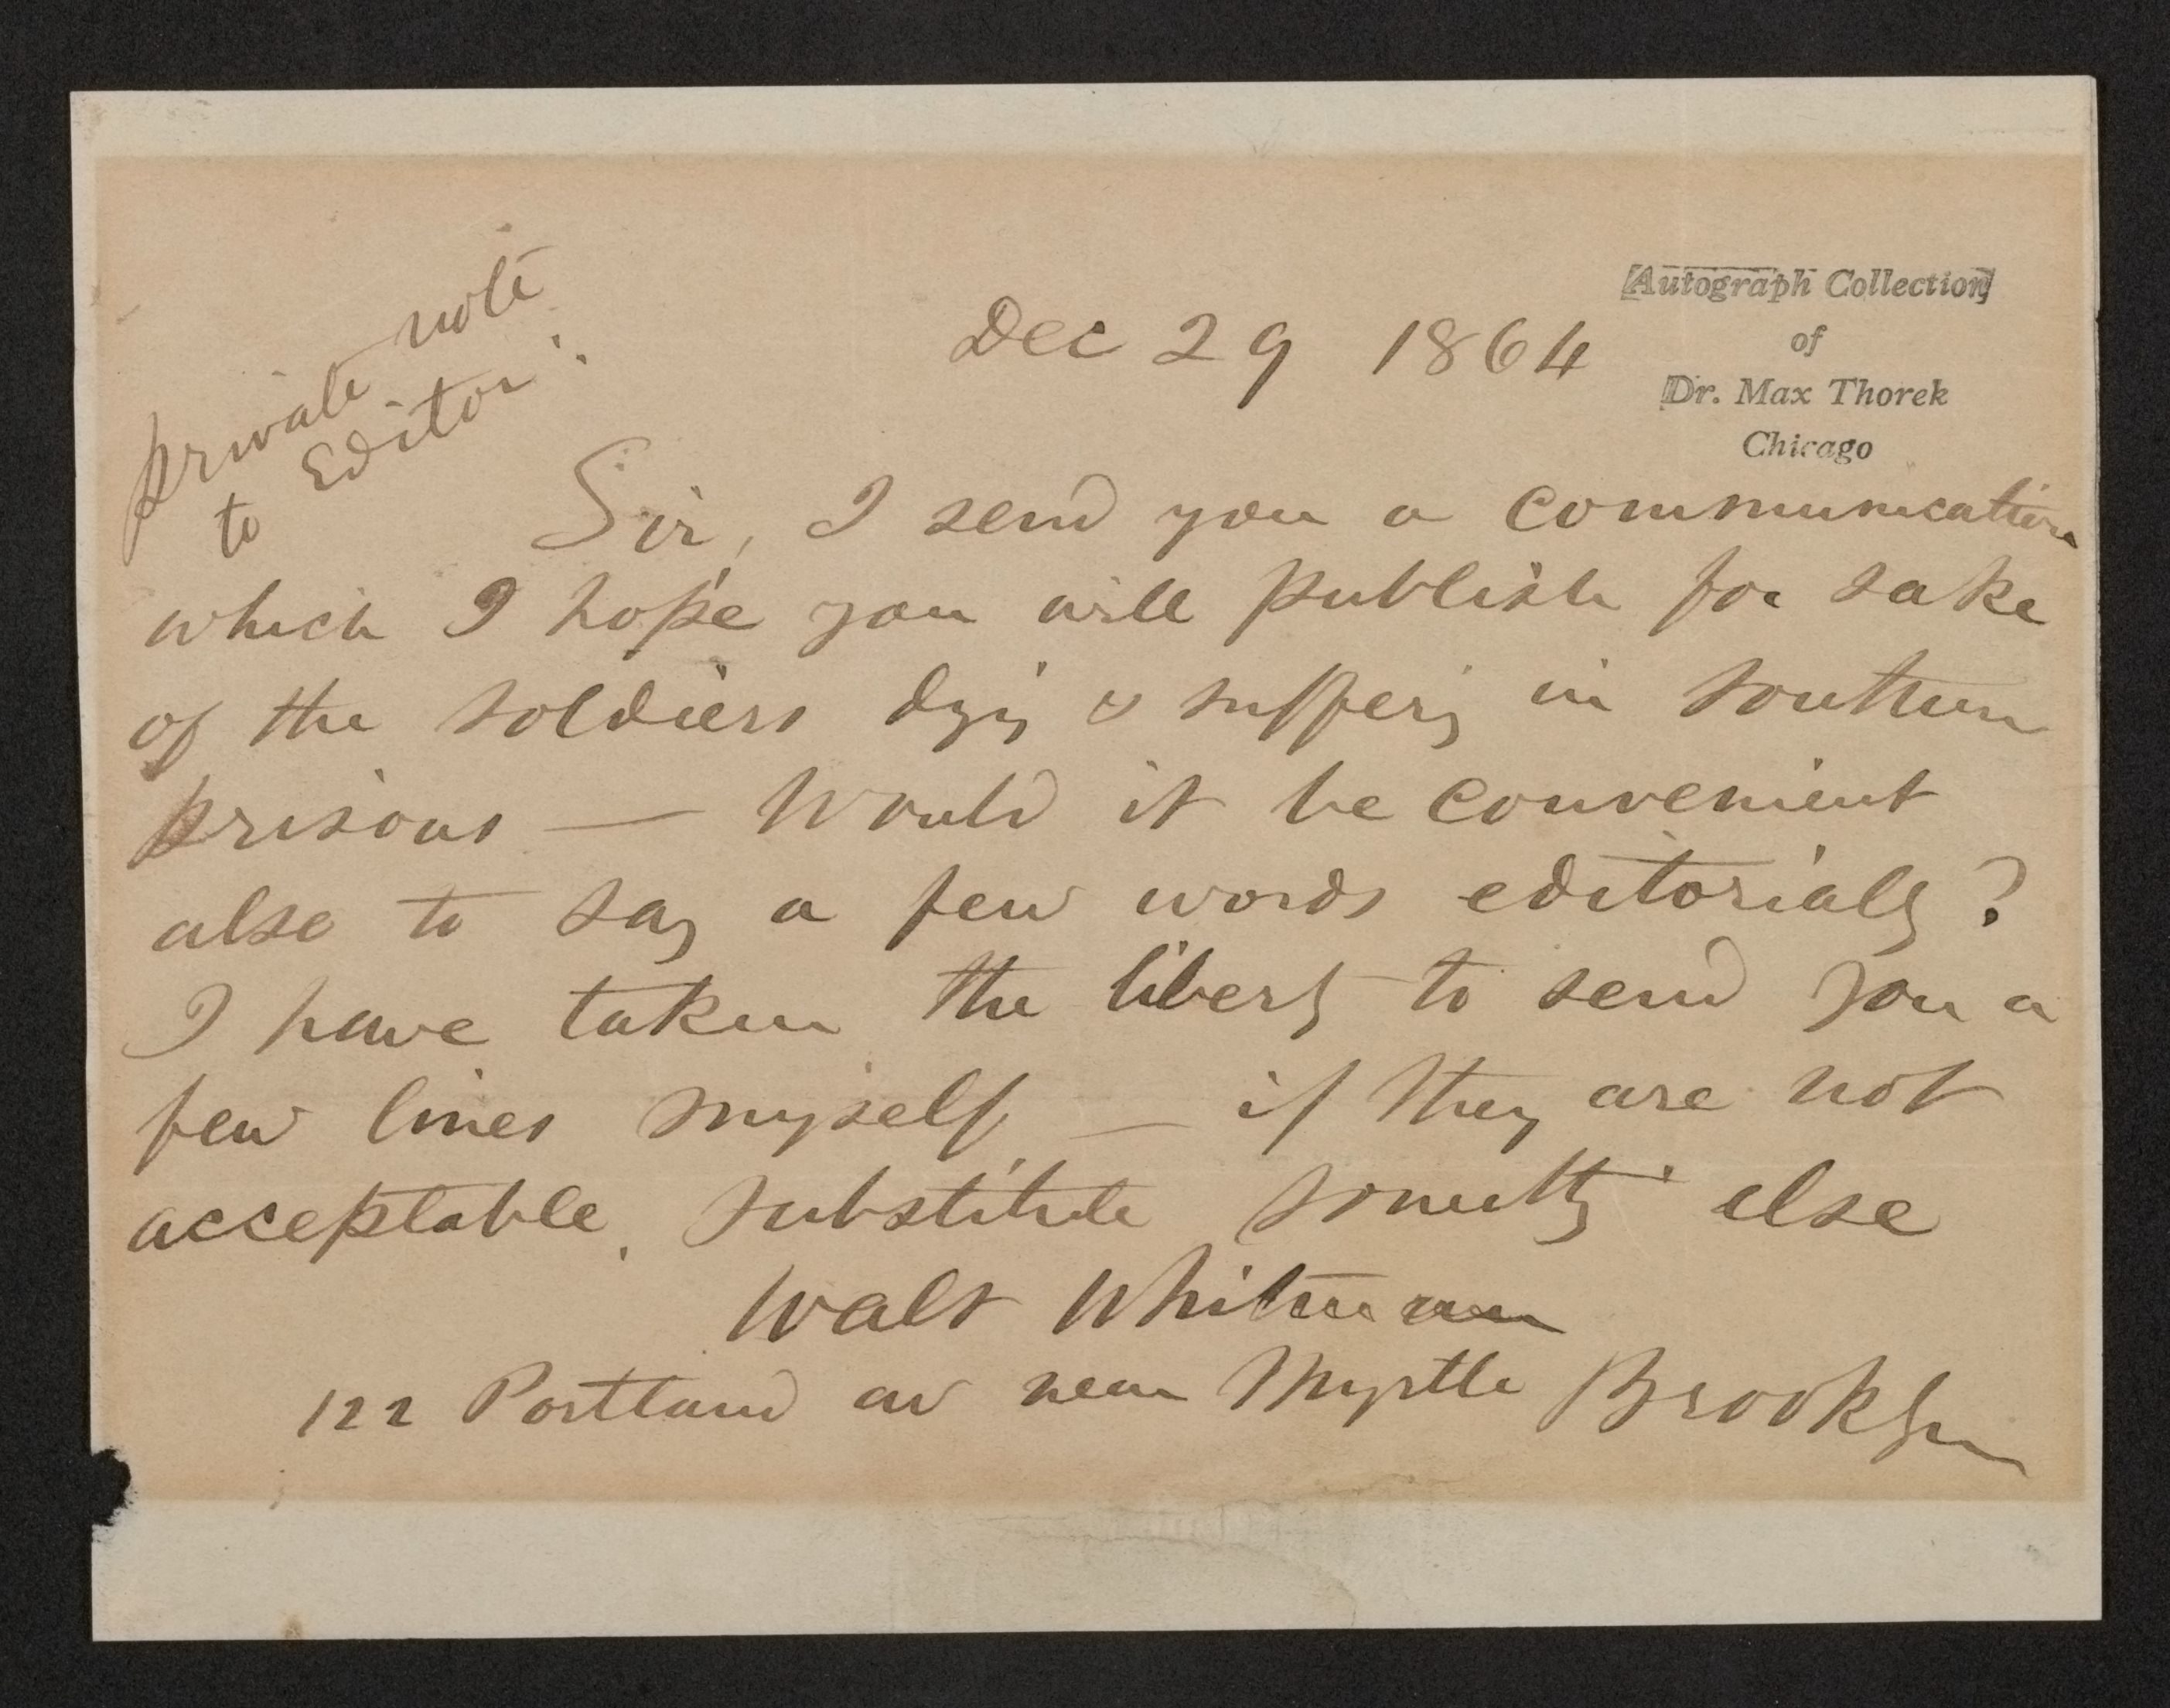 private note
to Editor :
Dec 29 1864
Autograph Collection
of
Dr. Max Thorek
Chicago
Sir, I send you a communication
which I hope you will publish for sake
of the soldiers dyig & sufferig in Southern
prisons — Would it be convenient
also to say a few words editorially?
I have taken the liberty to send you a
few lines myself — if they are not
acceptable, substitute somethg else
Walt Whitman
122 Portland av near Myrtle Brooklyn